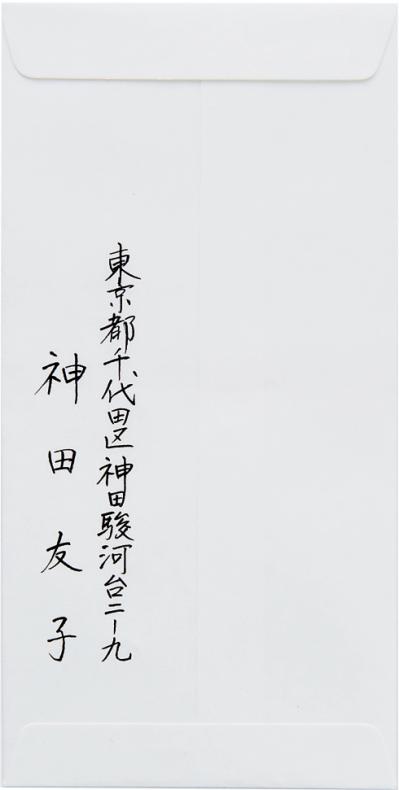 東京都千代田区神田駿河台二ー九
神田友子